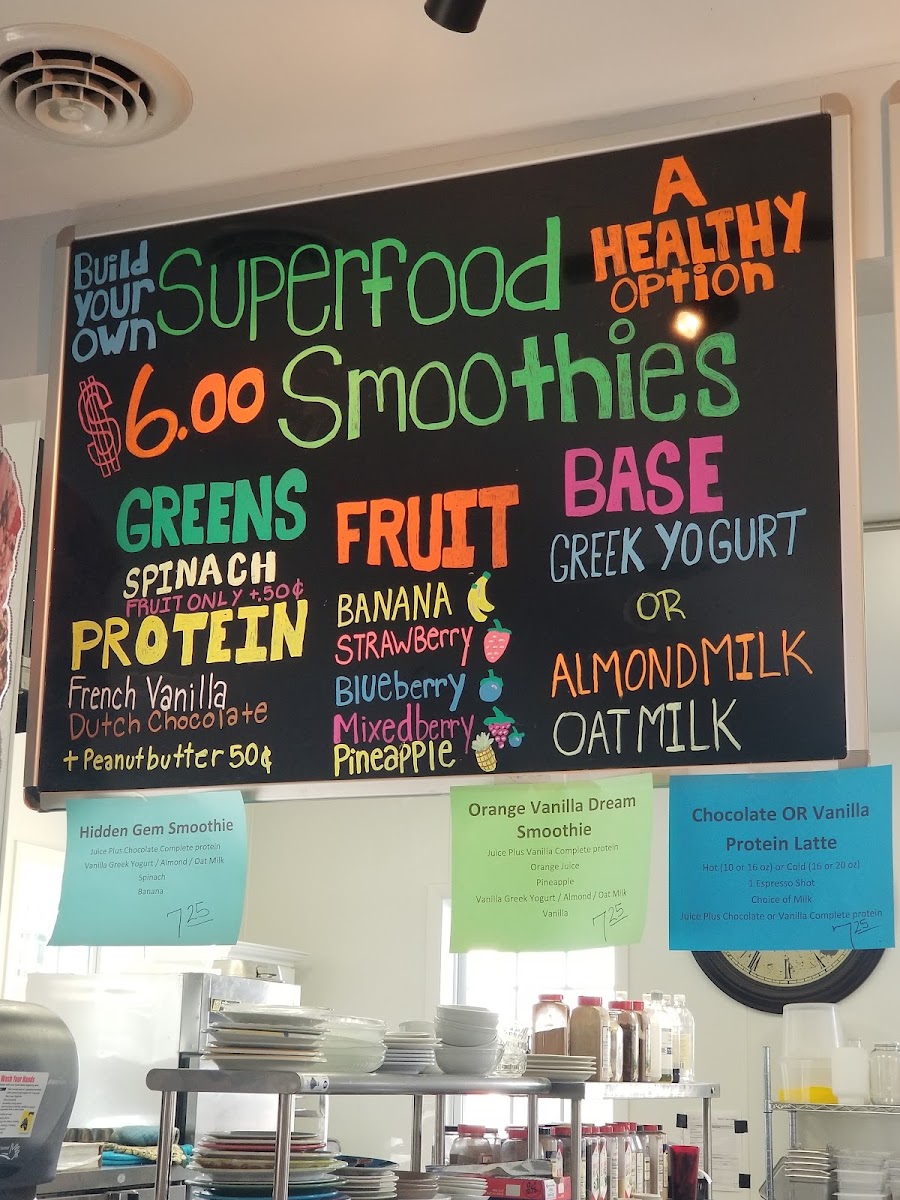 Build
your
own
Superfood
Smoothies
$6.00
A
HEALTHY
Option
GREENS
SPINACH
FRUIT ONLY +.50¢
PROTEIN
French Vanilla
Dutch Chocolate
+ Peanutbutter 50¢
FRUIT
BANANA
STRAWBerry
Blueberry
Mixedberry
Pineapple
BASE
GREEK YOGURT
OR
ALMONDMILK
OATMILK
Hidden Gem Smoothie
Juice Plus Chocolate Complete protein
Vanilla Greek Yogurt / Almond / Oat Milk
Spinach
Banana
7.25
Orange Vanilla Dream
Smoothie
Juice Plus Vanilla Complete protein
Orange Juice
Pineapple
Vanilla Greek Yogurt / Almond / Oat Milk
Vanilla
7.25
Chocolate OR Vanilla
Protein Latte
Hot (10 or 16 oz) or Cold (16 or 20 oz)
1 Espresso Shot
Choice of Milk
Juice Plus Chocolate or Vanilla Complete protein
7.25
Wash Your Hands